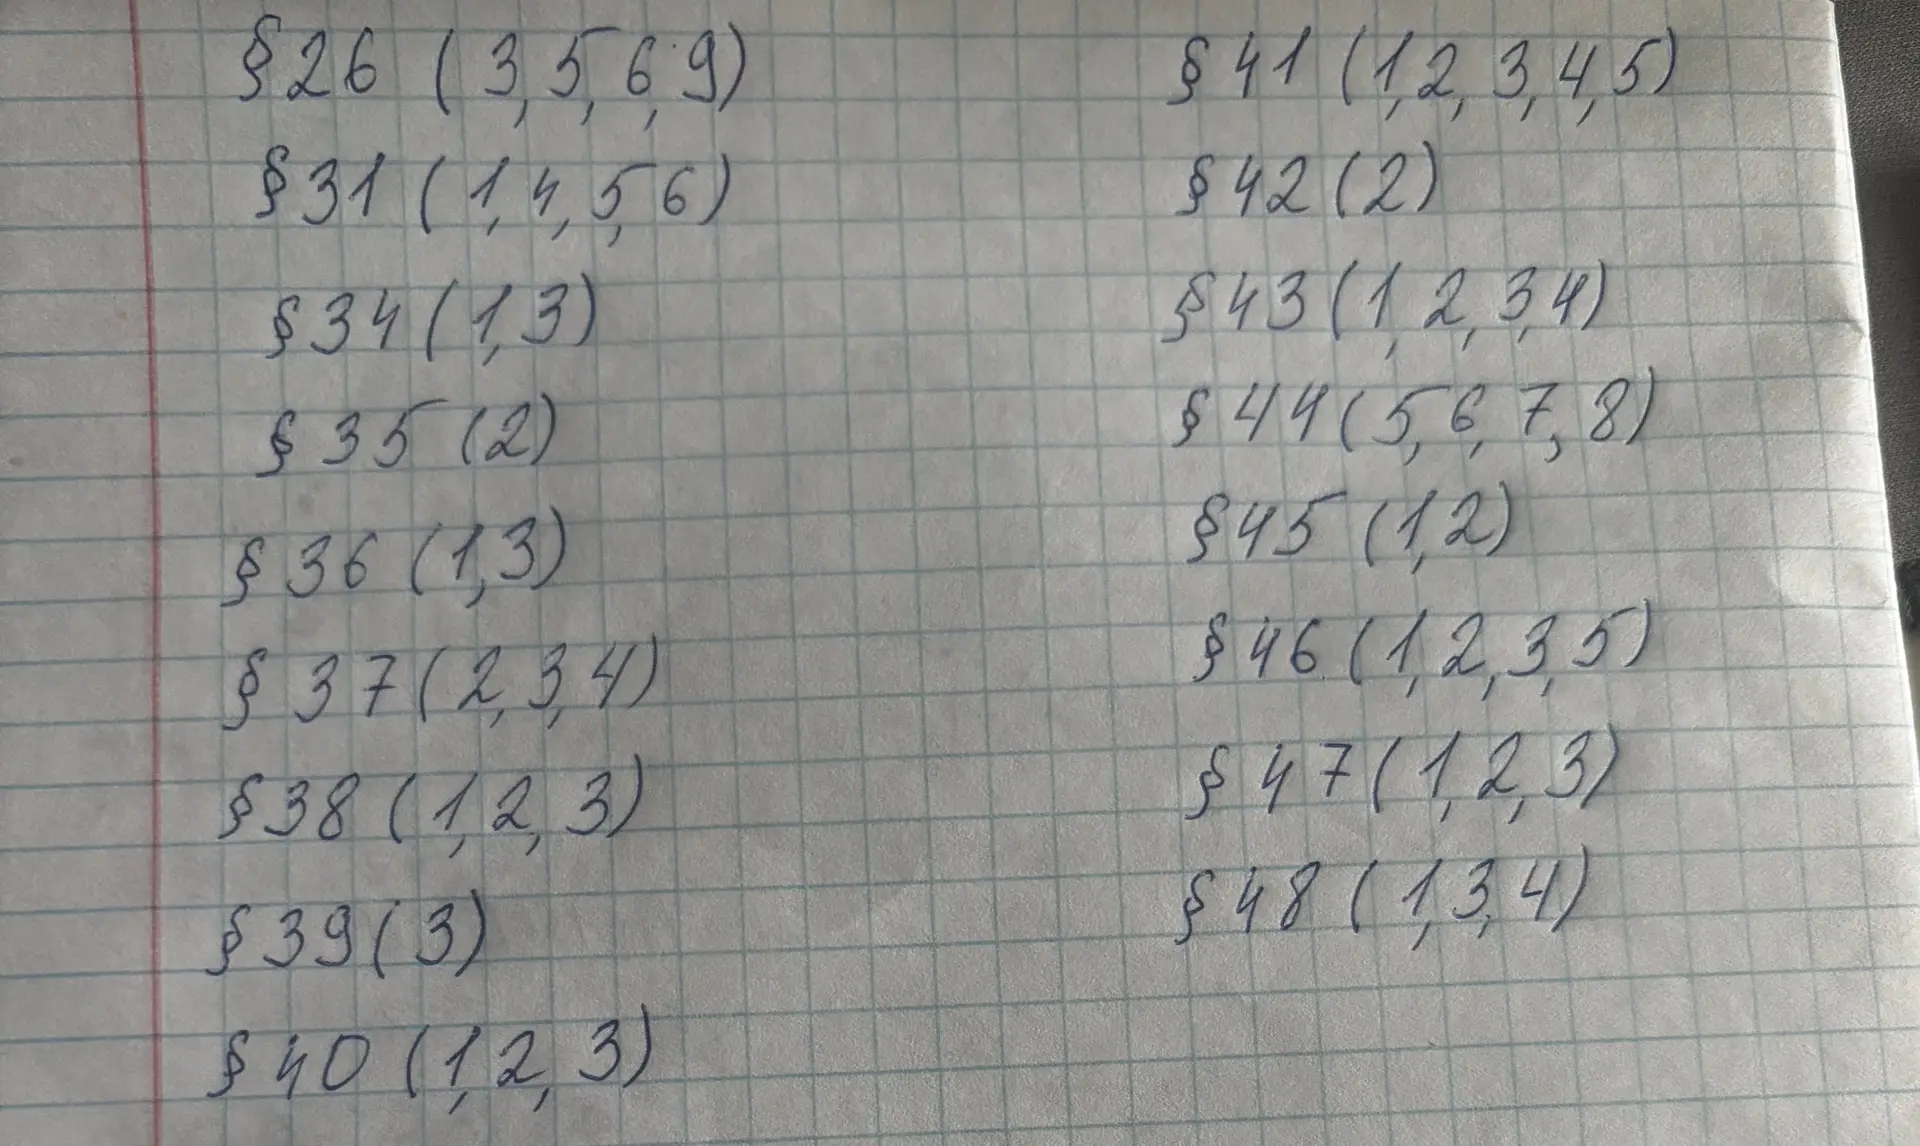 § 26 (3, 5, 6, 9)
§ 31 (1, 4, 5, 6)
§ 34 (1, 3)
§ 35 (2)
§ 36 (1, 3)
§ 37 (2, 3, 4)
§ 38 (1, 2, 3)
§ 39 (3)
§ 40 (1, 2, 3)
§ 41 (1, 2, 3, 4, 5)
§ 42 (2)
§ 43 (1, 2, 3, 4)
§ 44 (5, 6, 7, 8)
§ 45 (1, 2)
§ 46 (1, 2, 3, 5)
§ 47 (1, 2, 3)
§ 48 (1, 3, 4)